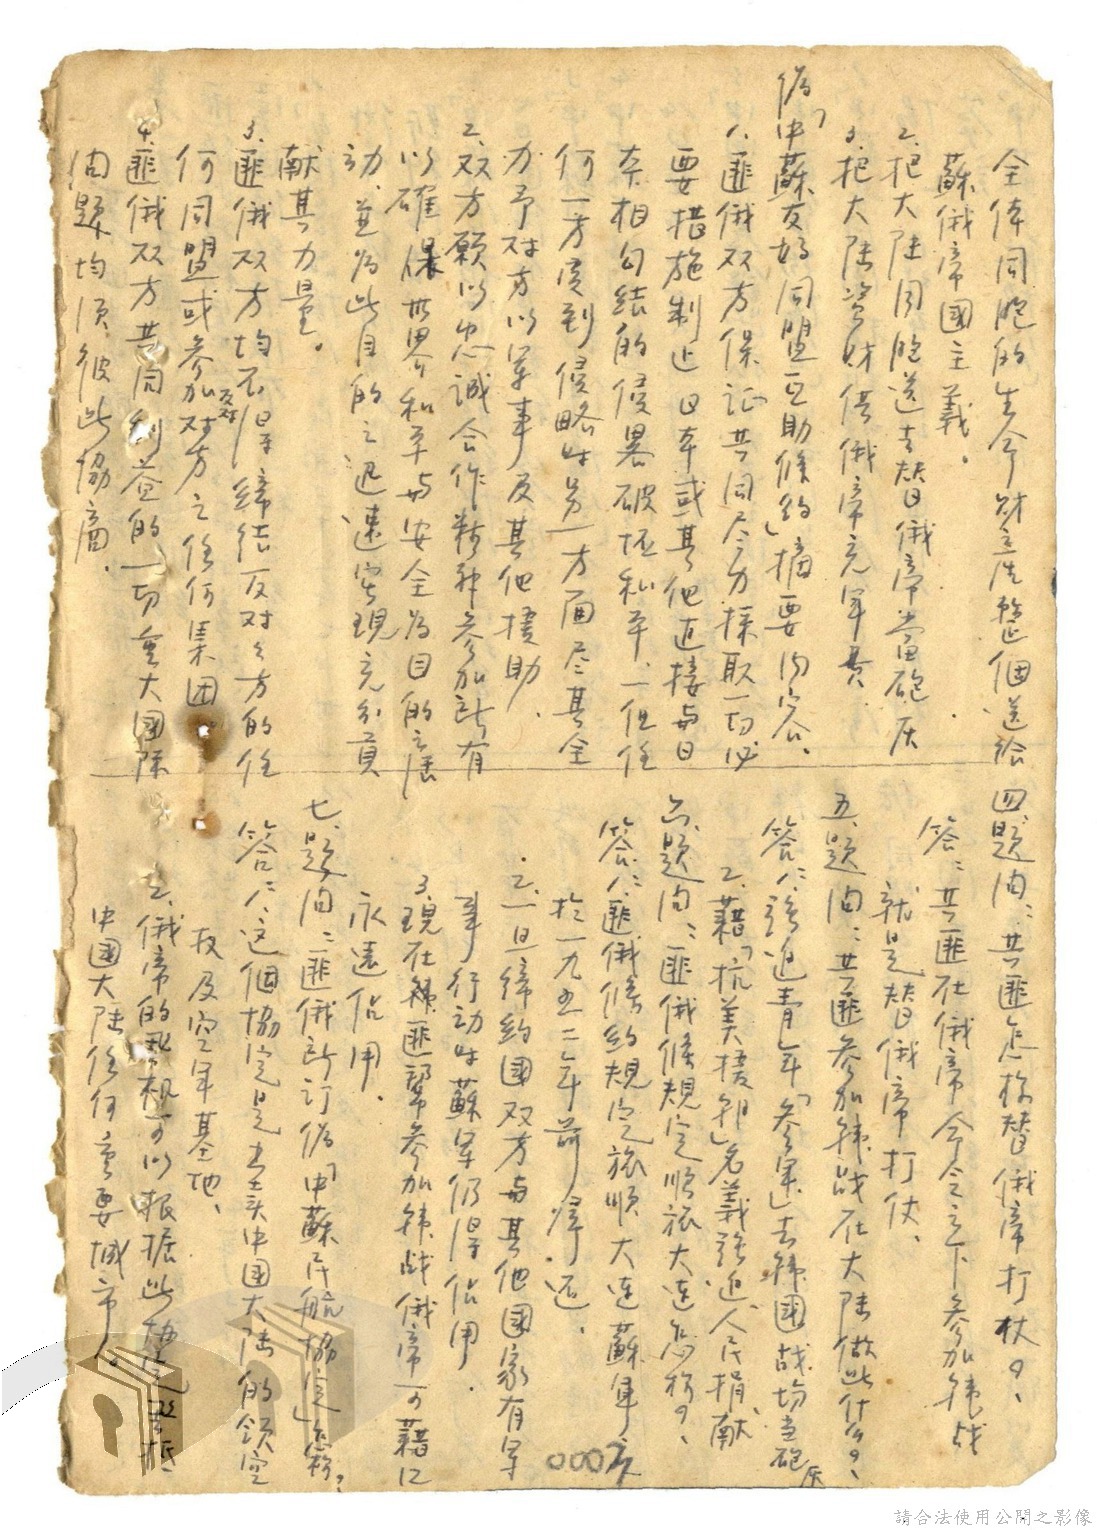 全体同胞的生命财産整個送给
蘇俄帝國主義。
2.把大陸同胞送去替俄帝當砲灰
3.把大陸资财供俄帝充军费
偽「中蘇友好同盟互助條约」摘要内容、
1.匪俄双方保证共同尽力採取一切必
要措施制止日本或其他直接与日
本相勾结的侵畧破坏和平、一但任
何一方受到侵略时另一方面尽其全
力予对方以军事及其他援助、
2.双方願以忠诚合作精神参加所有
以確保世界和平与安全為目的之
动、並為此目的之迅速实現充分貢
献其力量。
3.匪俄双方均不得缔结反对々方的任
何同盟或参加反对对方之任何集团。
4.匪俄双方共同利益的一切重大國际
问题均须彼此協商、
四、题问：共匪怎样替俄帝打杖？、
答：共匪在俄帝命令之下参加韩战
就是替俄帝打仗、
五、题问：共匪参加韩战在大陸做些什么？、
答：1.强迫青年「参军」去韩國战场当砲灰
2.藉「抗美援朝」名義强迫人民捐献
六、题问：匪俄條规定順旅大连怎样？、
答：1.匪俄條约规定旅順大连蘇軍應
於一九五二年前撤退.
2.一旦缔约國双方与其他國家有军
事行动时蘇军仍得佔用.
3.現在韩匪幫参加韩战俄帝可藉口
永遠佔用.
七、题问：匪俄所订偽「中蘇民航協定」怎样？
答：1.这個協定是出卖中国大陸的领空
权及空军基地、
2.俄帝的飛机可以根据此協定飞抵
中國大陸任何重要城市。
0007
請合法使用公開之影像